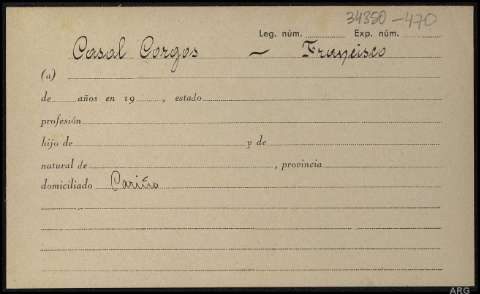 34350-470
Leg. núm. Exp. núm.
Casal Corgos — Francisco
(a)
de años en 19 , estado
profesión
hijo de y de
natural de , provincia
domiciliado Cariño
ARG